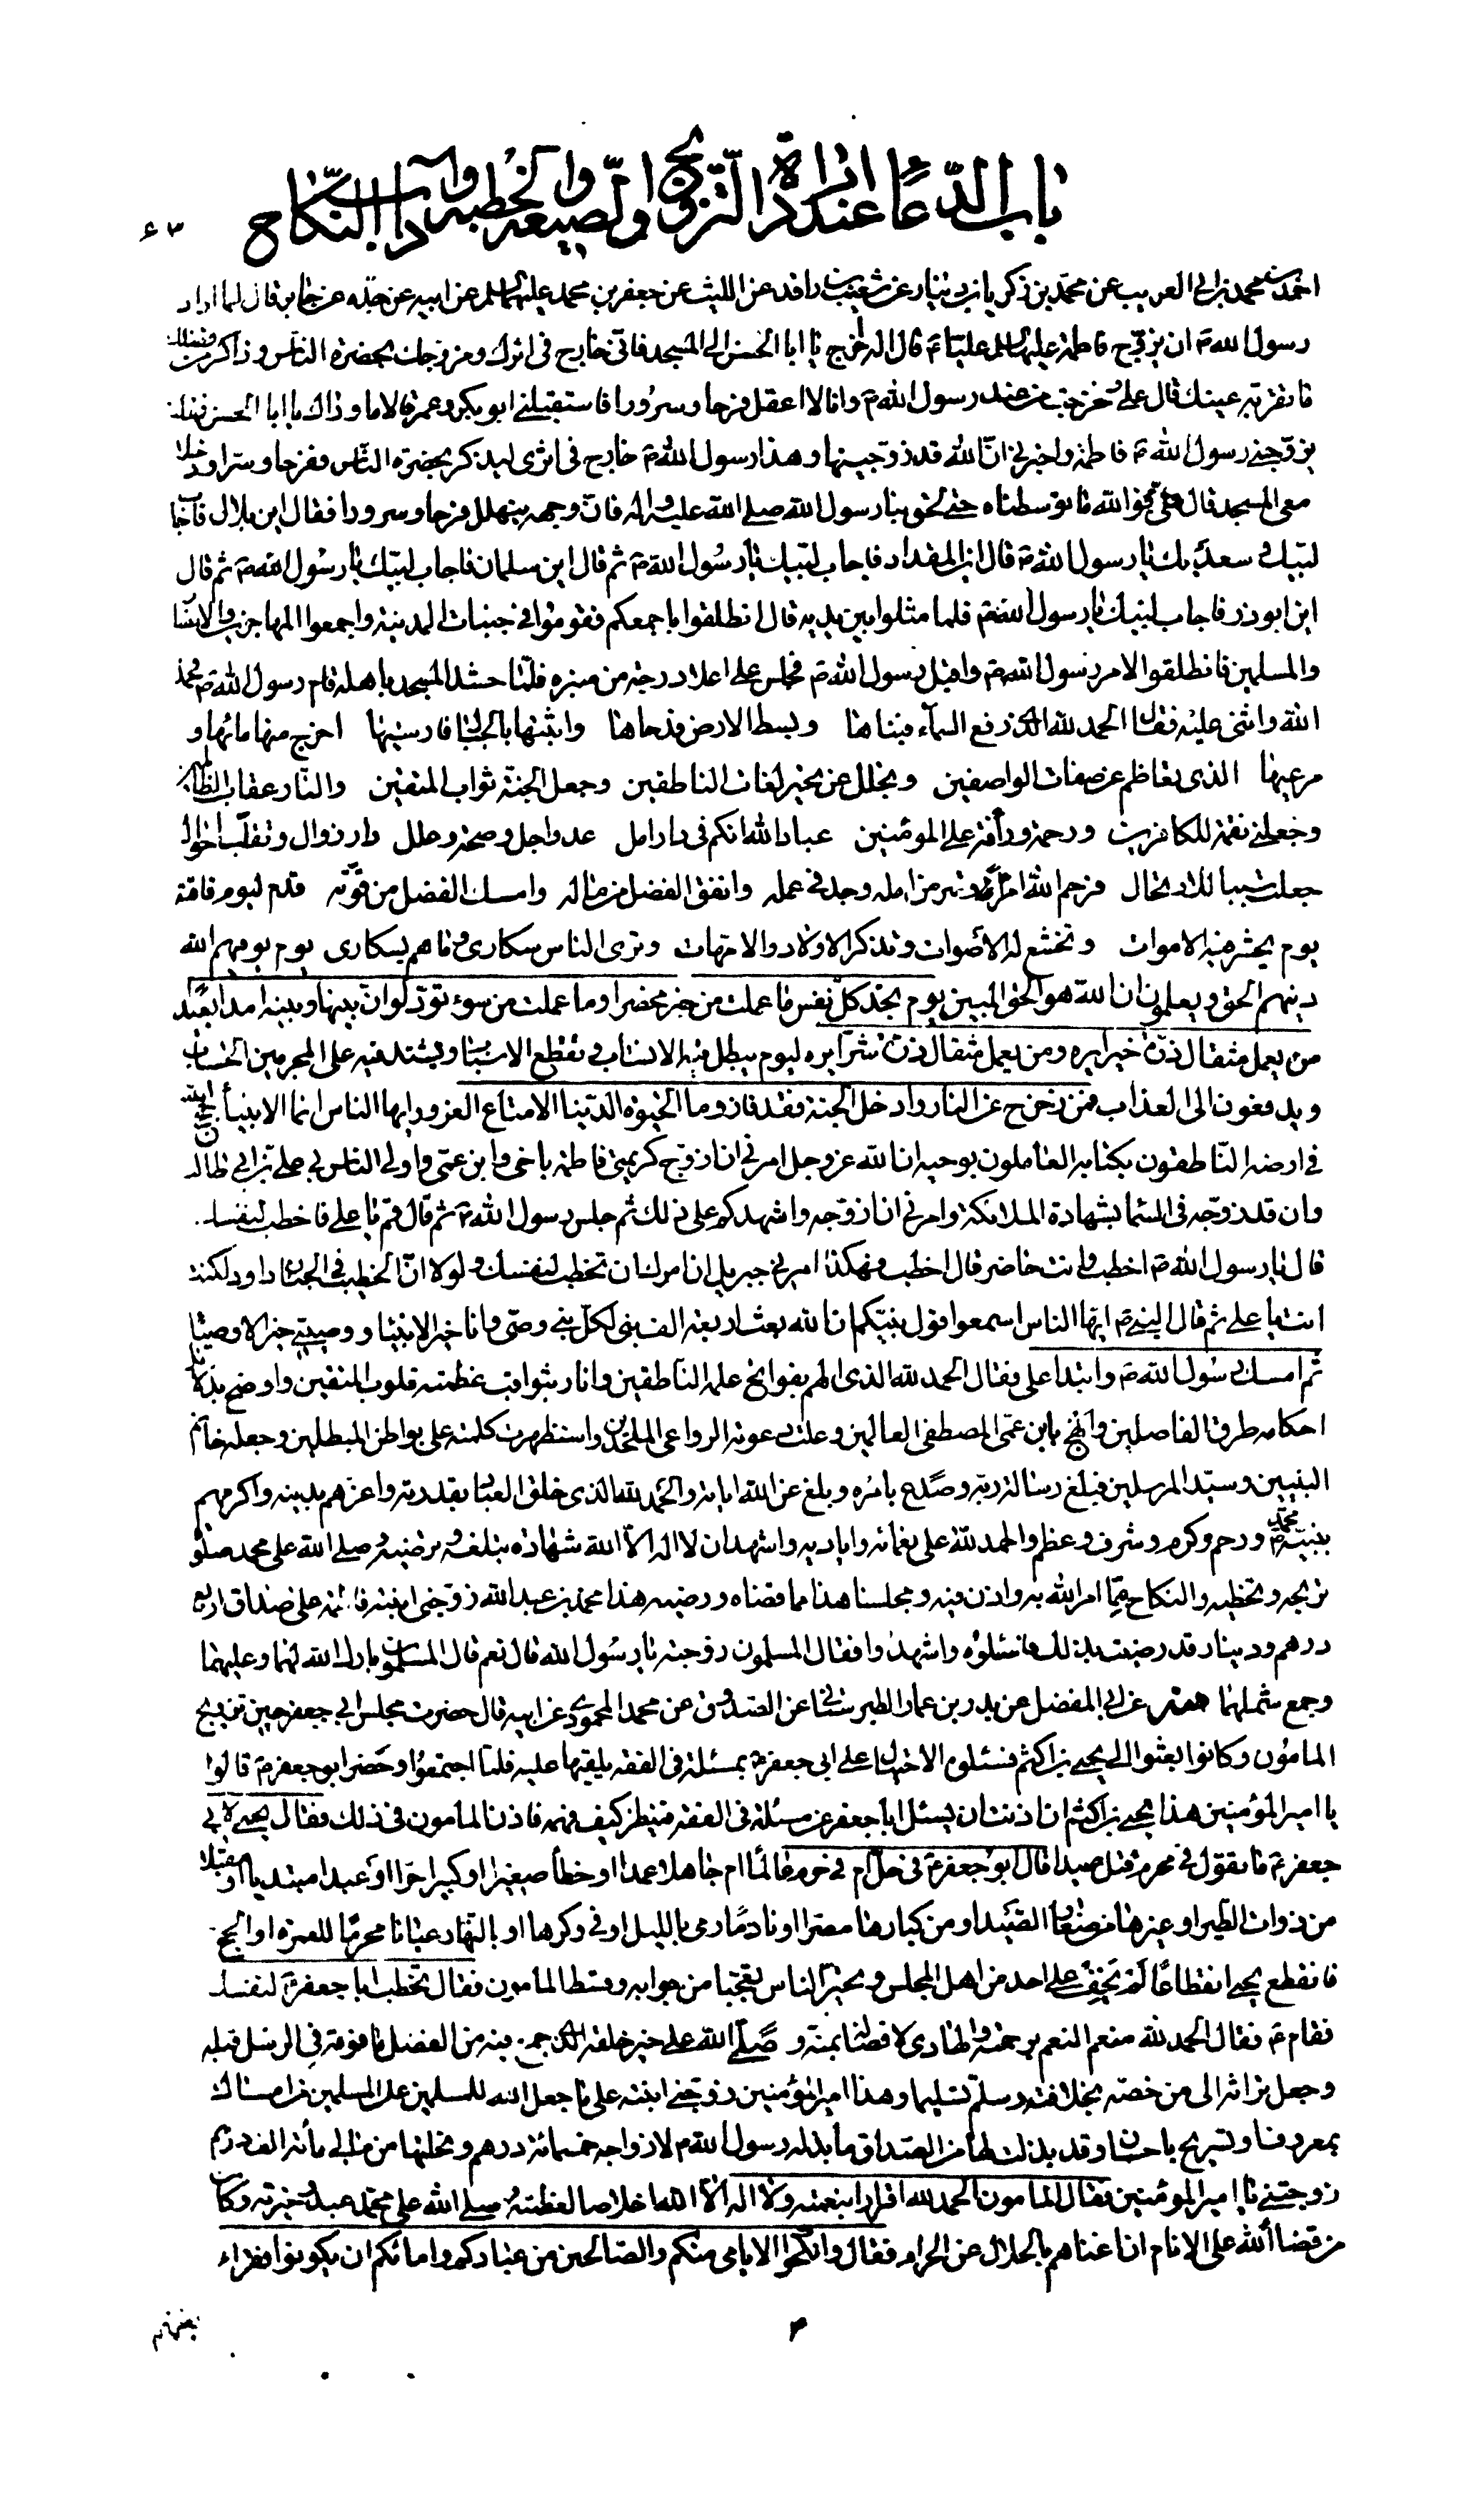 باب الدعاء عند ارادة التزويج والصيغة والخطبة وآداب النكاح
احمد بن محمد بن ابى العريب عن محمد بن زكريا بن دينار عن شعيب بن واقد عن الليث عن جعفر بن محمد عليهما السلم عن ابيه عن جده عن جابر قال لما اراد
رسول الله ص ان يزوج فاطمة عليها السلم عليا ع قال له اخرج يا ابا الحسن الى المسجد فانى خارج فى اثرك ومزوجك بحضرة الناس وذاكر من فضلك
ما تقر به عينك قال على خرجت من عند رسول الله ص وانا لا اعقل فرحا وسرورا فاستقبلنى ابو بكر وعمر قالا ما وراك يا ابا الحسن فقلت
يزوجنى رسول الله ص فاطمة واخبرنى ان الله قد زوجنيها وهذا رسول الله ص خارج فى اثرى ليذكر بحضرة الناس ففرحا وسرا ودخلا
معى المسجد قال على فوالله ما توسطناه حتى لحق بنا رسول الله صلى الله عليه واله فان وجهه يتهلل فرحا وسرورا فقال اين بلال فاجاب
لبيك وسعديك يا رسول الله ص قال اين المقداد فاجاب لبيك يا رسول الله ص ثم قال اين سلمان فاجاب لبيك يا رسول الله ص ثم قال
اين ابو ذر فاجاب لبيك يا رسول الله ص فلما مثلوا بين يديه قال انطلقوا باجمعكم فقوموا فى جنبات المدينة واجمعوا المهاجرين والانصار
والمسلمين فانطلقوا لامر رسول الله ص واقبل رسول الله ص فجلس على اعلا درجة من منبره فلما حشد المسجد باهله قام رسول الله ص فحمد
الله واثنى عليه فقال الحمد لله الذى رفع السماء فبناها وبسط الارض فدحاها واثبتها بالجبال فارسيها اخرج منها مائها و
مرعيها الذى تعاظم عن صفات الواصفين وتجلل عن تحبير لغات الناطقين وجعل الجنة ثواب المتقين والنار عقاب الظالمين
وجعلنى نقمة للكافرين ورحمة ورأفة على المؤمنين عباد الله انكم فى دار امل عدو اجل وصحة وعلل دار زوال وتقلب احوال
جعلت سببا للارتحال فرحم الله امرأ قصر من امله وجد فى عمله وانفق الفضل من ماله وامسك الفضل من قوته قدم ليوم فاقته
يوم يحشر فيه الاموات وتخشع له الاصوات وتذكر الاولاد والامهات وترى الناس سكارى وما هم بسكارى يوم يوفيهم الله
دينهم الحق ويعلمون ان الله هو الحق المبين يوم تجد كل نفس ما عملت من خير محضرا وما عملت من سوء تود لو ان بينها وبينه امدا بعيدا
من يعمل مثقال ذرة خيرا يره ومن يعمل مثقال ذرة شرا يره ليوم يبطل فيه الانساب وتقطع الاسباب ويشتد فيه على المجرمين الحساب
ويدفعون الى العذاب فمن زحزح عن النار وادخل الجنة فقد فاز وما الحيوة الدنيا الا متاع الغرور ايها الناس انما الانبياء حجج الله
فى ارضه الناطقون بكتابه العاملون بوحيه ان الله عز وجل امرنى ان ازوج كريمتى فاطمة باخى وابن عمى واولى الناس بى على بن ابى طالب
وان قد زوجه فى السماء بشهادة الملائكة وامرنى ان ازوجه واشهدكم على ذلك ثم جلس رسول الله ص ثم قال قم يا على فاخطب لنفسك
قال يا رسول الله ص اخطب وانت حاضر قال اخطب فهكذا امرنى جبريل ان امرك ان تخطب لنفسك ولولا ان الخطيب فى الجنان داود لكنت
انت يا على ثم قال النبى ص ايها الناس اسمعوا قول نبيكم ان الله بعث اربعة الف نبى لكل نبى وصى وانا خير الانبياء ووصيى خير الاوصياء
ثم امسك رسول الله ص وابتدا على فقال الحمد لله الذى الهم بفواتح علمه الناطقين وانار بثواقب عظمته قلوب المتقين واوضح بدلائل
احكامه طرق الفاصلين وانهج بابن عمى المصطفى العالمين وعلت دعوته لرواعى الملحدين واستظهرت كلمته على بواطن المبطلين وجعله خاتم
النبيين وسيد المرسلين فبلغ رسالة ربه وصدع بامره وبلغ عن الله اياته والحمد لله الذى خلق العباد بقدرته واعزهم بدينه واكرمهم
بنبيه محمد ص ورحم وكرم وشرف وعظم والحمد لله على نعمائه واياديه واشهد ان لا اله الا الله شهادة تبلغه وترضيه وصلى الله على محمد صلوة
تربحه وتحظيه والنكاح مما امر الله به واذن فيه ومجلسنا هذا مما قضاه ورضيه هذا محمد بن عبد الله زوجنى ابنته فاطمة على صداق اربع
درهم ودينار قد رضيت بذلك فاسئلوه واشهدوا فقال المسلمون زوجته يا رسول الله قال نعم قال المسلمون بارك الله لهما وعليهما
وجمع شملهما عن ابى المفضل عن بدر بن عمار الطبرستانى عن الصدوق عن محمد المحمودى عن ابيه قال حضرت مجلس ابى جعفر حين تزويج
المامون وكانوا بعثوا الى يحيى بن اكثم فسئلوه الاحتيال على ابى جعفر ع بمسئلة فى الفقه يلقيها عليه فلما اجتمعوا وحضر ابو جعفر ع قالوا
يا امير المؤمنين هذا يحيى بن اكثم ان اذنت ان يسئل ابا جعفر عن مسئلة فى الفقه فينظر كيف فهمه فاذن المامون فى ذلك فقال يحيى لابى
جعفر ع ما تقول فى محرم قتل صيدا قال ابو جعفر ع فى حل ام فى حرم عالما ام جاهلا عمدا او خطأ صغيرا او كبيرا حرا او عبدا مبتديا او مقبلا
من ذوات الطير او غيرها من صغار الصيد او من كبارها مصرا او نادما رمى بالليل او فى وكرها او بالنهار عيانا محرما للعمرة او الحج
فانقطع يحيى انقطاعا لم يخف على احد من اهل المجلس وتحير الناس تعجبا من جوابه ونشط المامون فقال تخطب ابا جعفر ع لنفسك
فقام ع فقال الحمد لله منعم النعم برحمته والهادى لافضاله بمنه وصلى الله على خير خلقه الذى جمع فيه من الفضل ما فرقه فى الرسل قبله
وجعل تراثه الى من خصه بخلافته وسلم تسليما وهذا امير المؤمنين زوجنى ابنته على ما جعل الله للمسلمين على المسلمين من امساك
بمعروف او تسريح باحسان وقد بذلت لها من الصداق ما بذله رسول الله ص لازواجه خمسمائة درهم ونحلتها من مالى مائة الف درهم
زوجتنى يا امير المؤمنين فقال المامون الحمد لله اقرارا بنعمته ولا اله الا الله اخلاصا لعظمته وصلى الله على محمد عبده وخيرته وكان
من قضاء الله على الانام ان اغناهم بالحلال عن الحرام فقال وانكحوا الايامى منكم والصالحين من عبادكم وامائكم ان يكونوا فقراء
٣